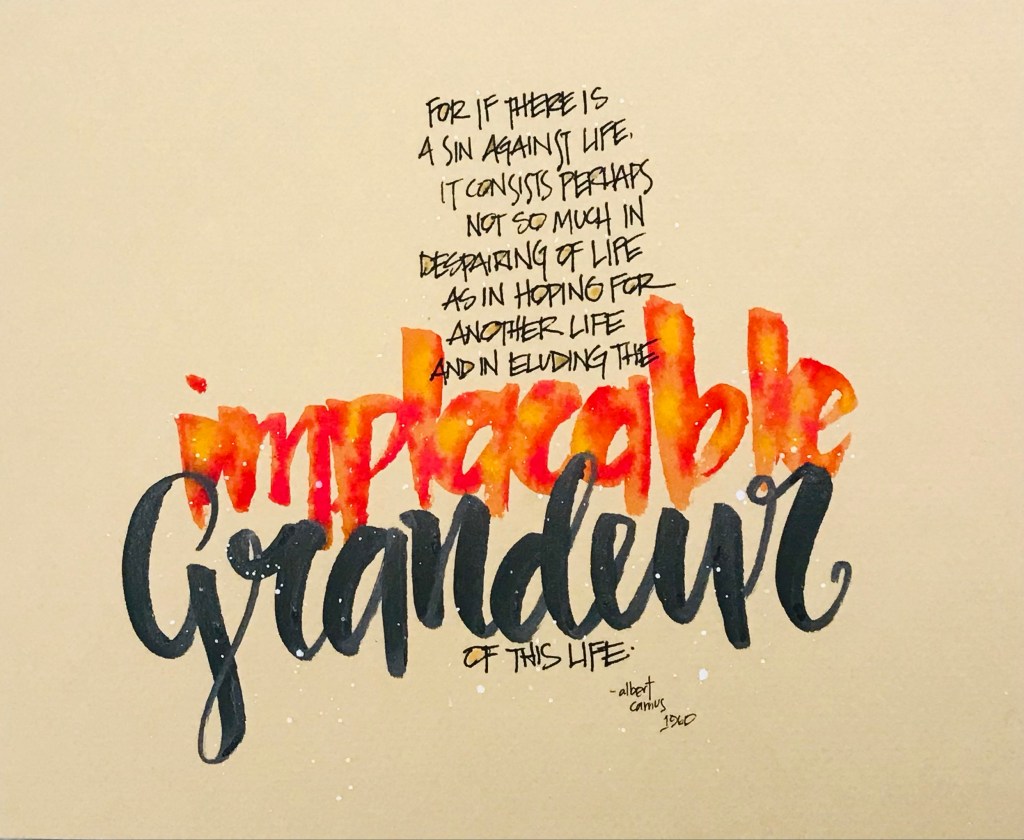 FOR IF THERE IS
A SIN AGAINST LIFE,
IT CONSISTS PERHAPS
NOT SO MUCH IN
DESPAIRING OF LIFE
AS IN HOPING FOR
ANOTHER LIFE
AND IN ELUDING THE
implacable
Grandeur
OF THIS LIFE.
- albert
camus
1960